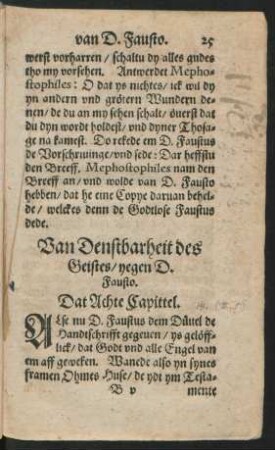 van D. Fausto. 25
werst vorharren / schaltu dy alles gudes
tho my vorsehen. Antwerdet Mepho-
stophiles: O dat ys nichtes / ick wil dy
yn andern vnd grötern Wundern de-
nen / de du an my sehen schalt / öuerst dat
du dyn wordt holdest / vnd dyner Thosa-
ge na kamest. Do rekede em D. Faustus
de Vorschriuinge / vnd sede: Dar heffstu
den Breeff. Mephostophiles nam den
Breeff an / vnd wolde van D. Fausto
hebben / dat he eine Copye daruan behel-
de / welckes denn de Godtlose Faustus
dede.
Van Denstbarheit des
Geistes / yegen D.
Fausto.
Dat Achte Capittel.
Alse nu D. Faustus dem Düuel de
Handtschrifft gegeuen / ys gelöff-
lick / dat Godt vnd alle Engel van
em aff geweken. Wanede also yn synes
framen Ohmes Huse / de ydt ym Testa-
B v mente